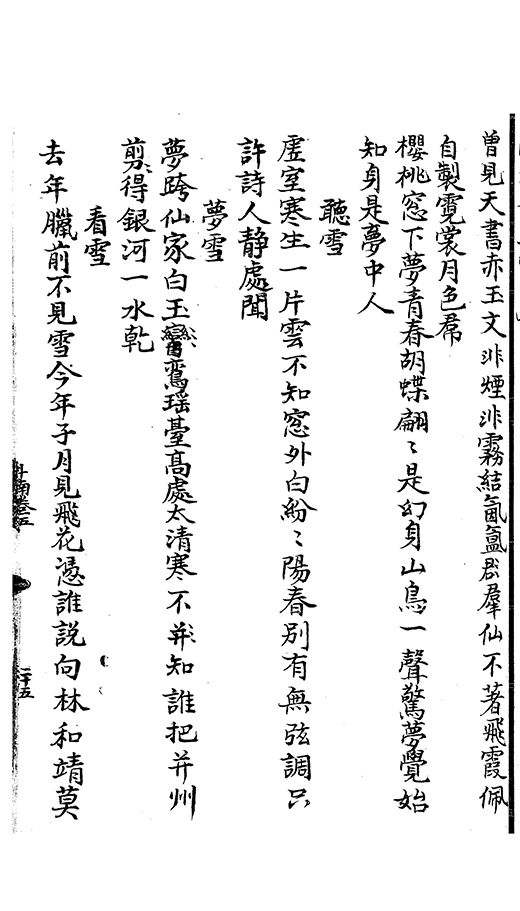 曽見天書赤玉文非煙非霧結氤氳羣仙不著飛霞佩
自製霓裳月色帬
櫻桃窓下夢青春胡蝶翩〻是幻身山鳥一聲驚夢覺始
知身是夢中人
聽雪
虚室寒生一片雲不知窓外白紛〻陽春別有無弦調只
許詩人静處聞
夢雪
夢跨仙家白玉鸞瑶臺髙處太清寒不知誰把并州
剪得銀河一水乾
看雪
去年臘前不見雪今年子月見飛花憑誰説向林和靖莫
二十五